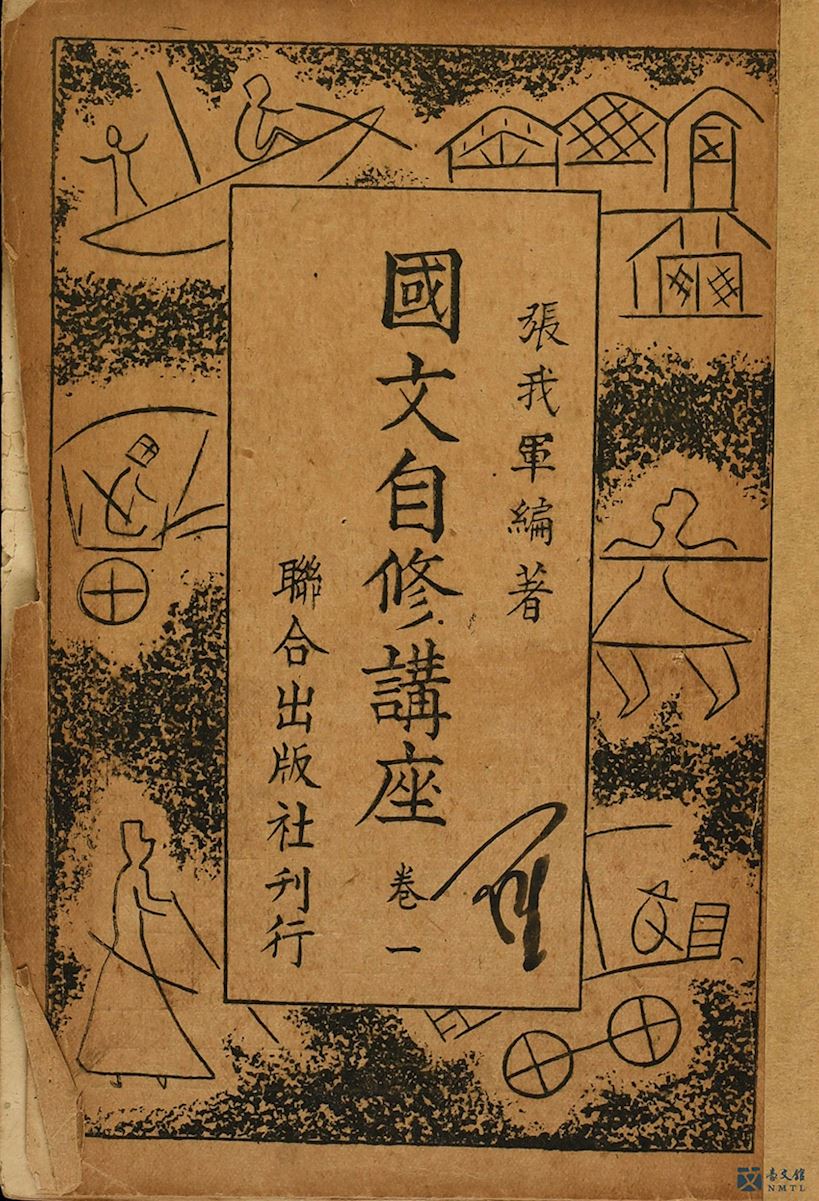 張我軍編著
國文自修講座
卷一
聯合出版社刊行
臺文館
NMTL